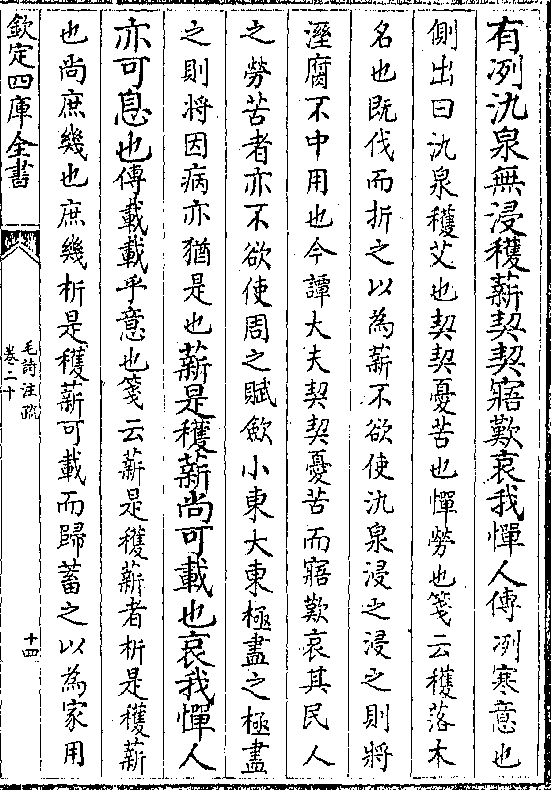 有冽氿泉無浸穫薪契契寤歎哀我憚人傳冽寒意也
側出曰氿泉穫艾也契契憂苦也憚勞也箋云穫落木
名也既伐而折之以為薪不欲使氿泉浸之浸之則將
溼腐不中用也今譚大夫契契憂苦而寤歎哀其民人
之勞苦者亦不欲使周之賦斂小東大東極盡之極盡
之則將因病亦猶是也薪是穫薪尚可載也哀我憚人
亦可息也傳載載乎意也箋云薪是穫薪者析是穫薪
也尚庶幾也庶幾析是穫薪可載而歸蓄之以為家用
欽定四庫全書
毛詩注疏
卷二十
十四